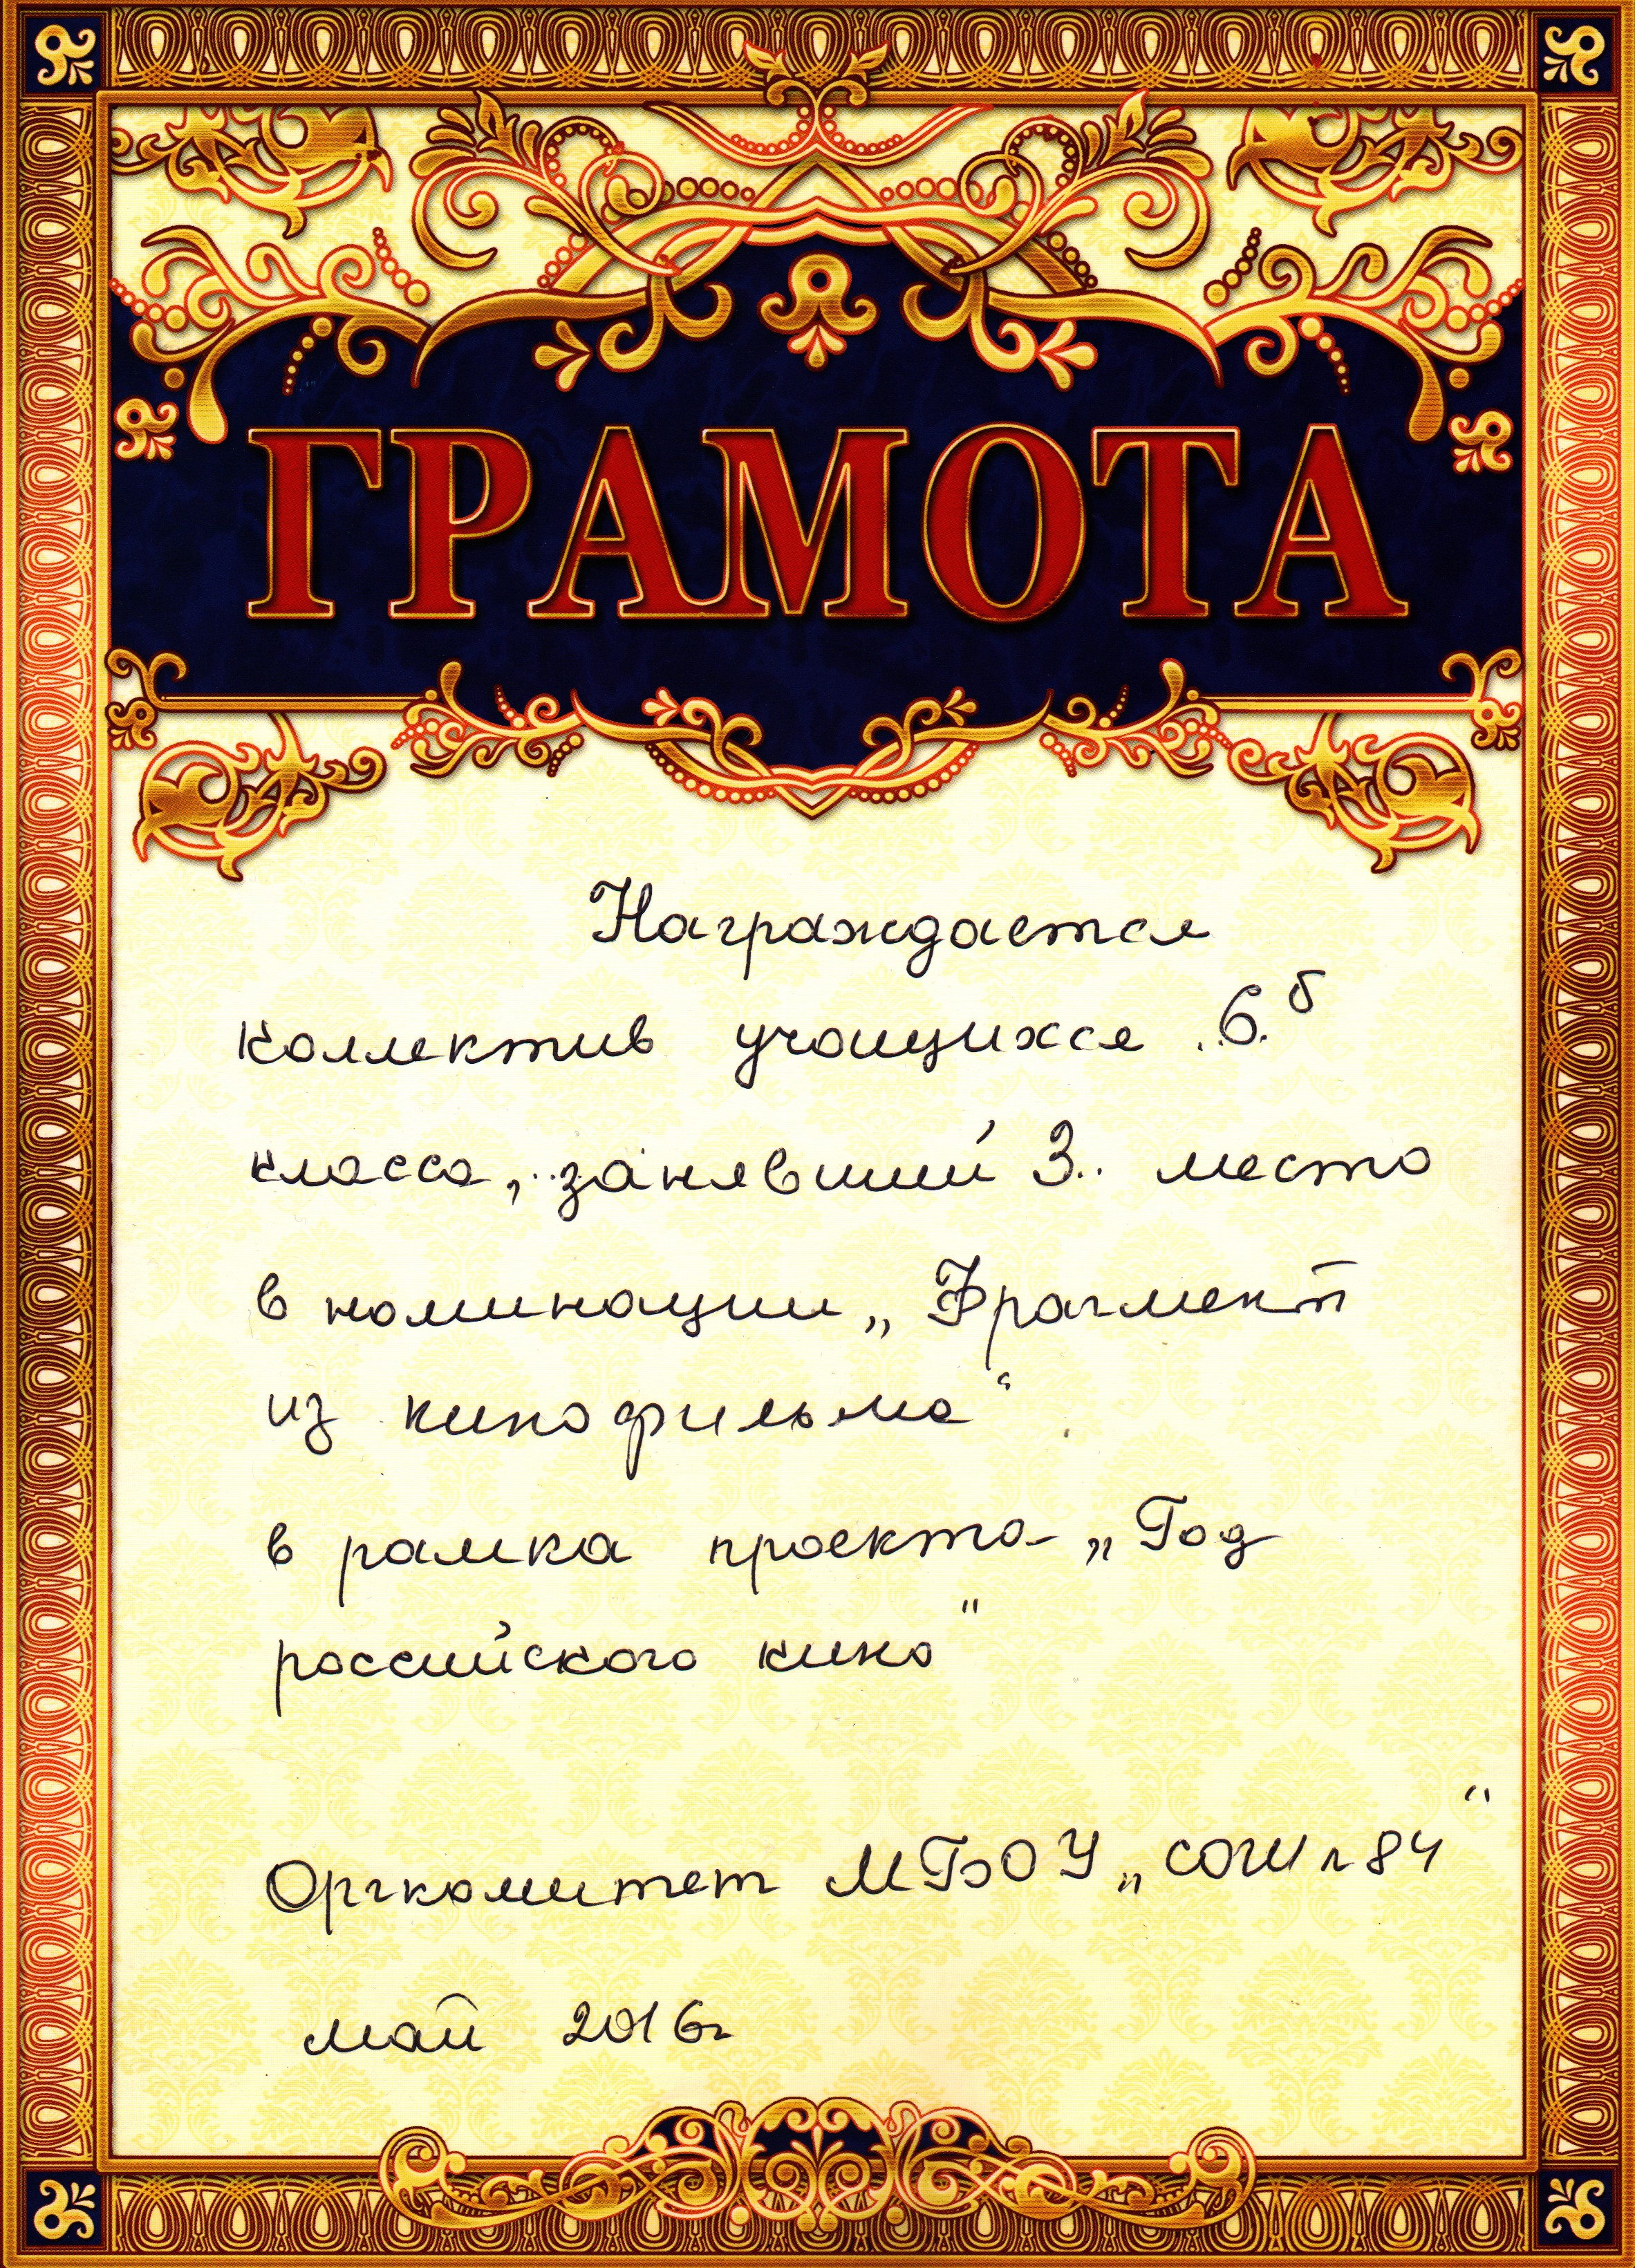 ГРАМОТА
Награждается
коллектив учащихся 6.б
класса, занявший 3 место
в номинации „Фрагмент
из кинофильма“
в рамка проекта „Год
российского кино"
Оргкомитет МБОУ „СОШ №84“
май 2016г